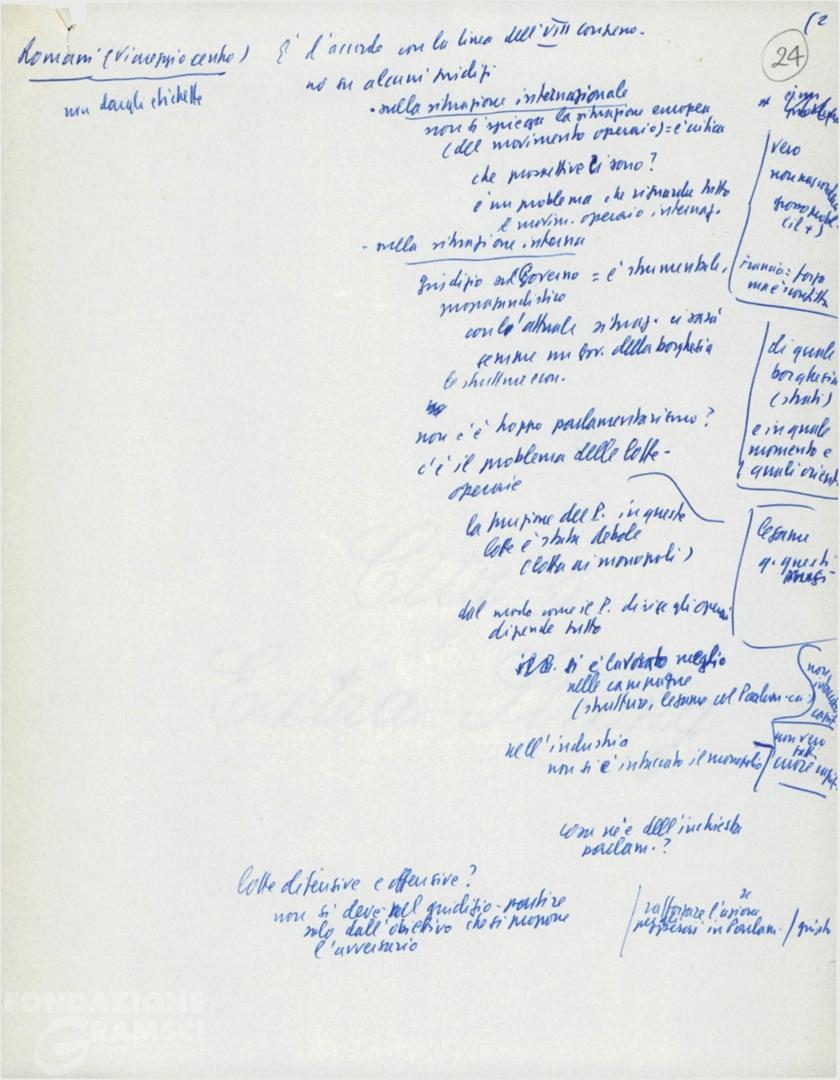 (2
24
Romani (Viareggio centro) È d'accordo con la linea dell'VIII congresso.
non dargli etichette
no su alcuni giudizi
- sulla situazione internazionale
non si spiega la situazione europea
(del movimento operaio) = è critica
che prospettive ci sono?
è un problema che riguarda tutto
il movim. operaio internaz.
vero
(il +)
Francia = forza
ma è sconfitta
- sulla situazione interna
giudizio sul Governo = è strumentale,
propagandistico
con l'attuale situaz. ci sarà
sempre un gov. della borghesia
le strutture econ.
di quale
borghesia
(strati)
e in quale
momento e
quali orient.
non c'è troppo parlamentarismo?
c'è il problema delle lotte
operaie
la funzione del P. in queste
lotte è stata debole
(lotta ai monopoli)
legame
q. questi
mesi
dal modo come il P. dirige gli operai
dipende tutto
si è lavorato meglio
nelle campagne
(strutture, legame col Parlam.
nell'industria
non si è intaccato il monopolio
non vero
cosa ne è dell'inchiesta
parlam.?
Lotte difensive e offensive?
non si deve nel giudizio partire
solo dall'obiettivo che si propone
l'avversario
rafforzare l'azione
in Parlam. / giusto
FONDAZIONE
GRAMSCI